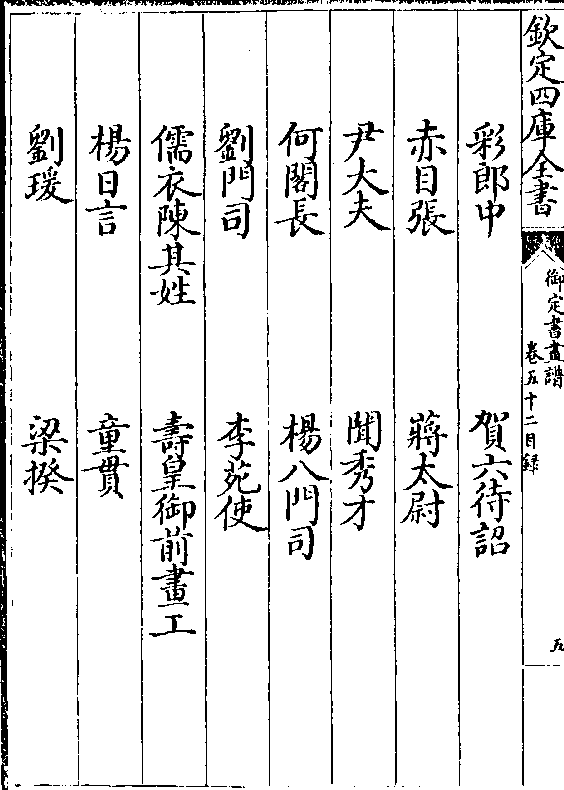 欽定四庫全書
御定書畫譜
卷五十二目録
五
彩郎中　賀六待詔
赤目張　蔣太尉
尹大夫　聞秀才
何閣長　楊八門司
劉門司　李苑使
儒衣陳其姓　壽皇御前畫工
楊日言　童貫
劉瑗　梁揆